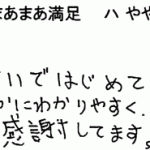 まあまあ満足 ハ やや
いではじめて
かにわかりやすく.
感謝してます